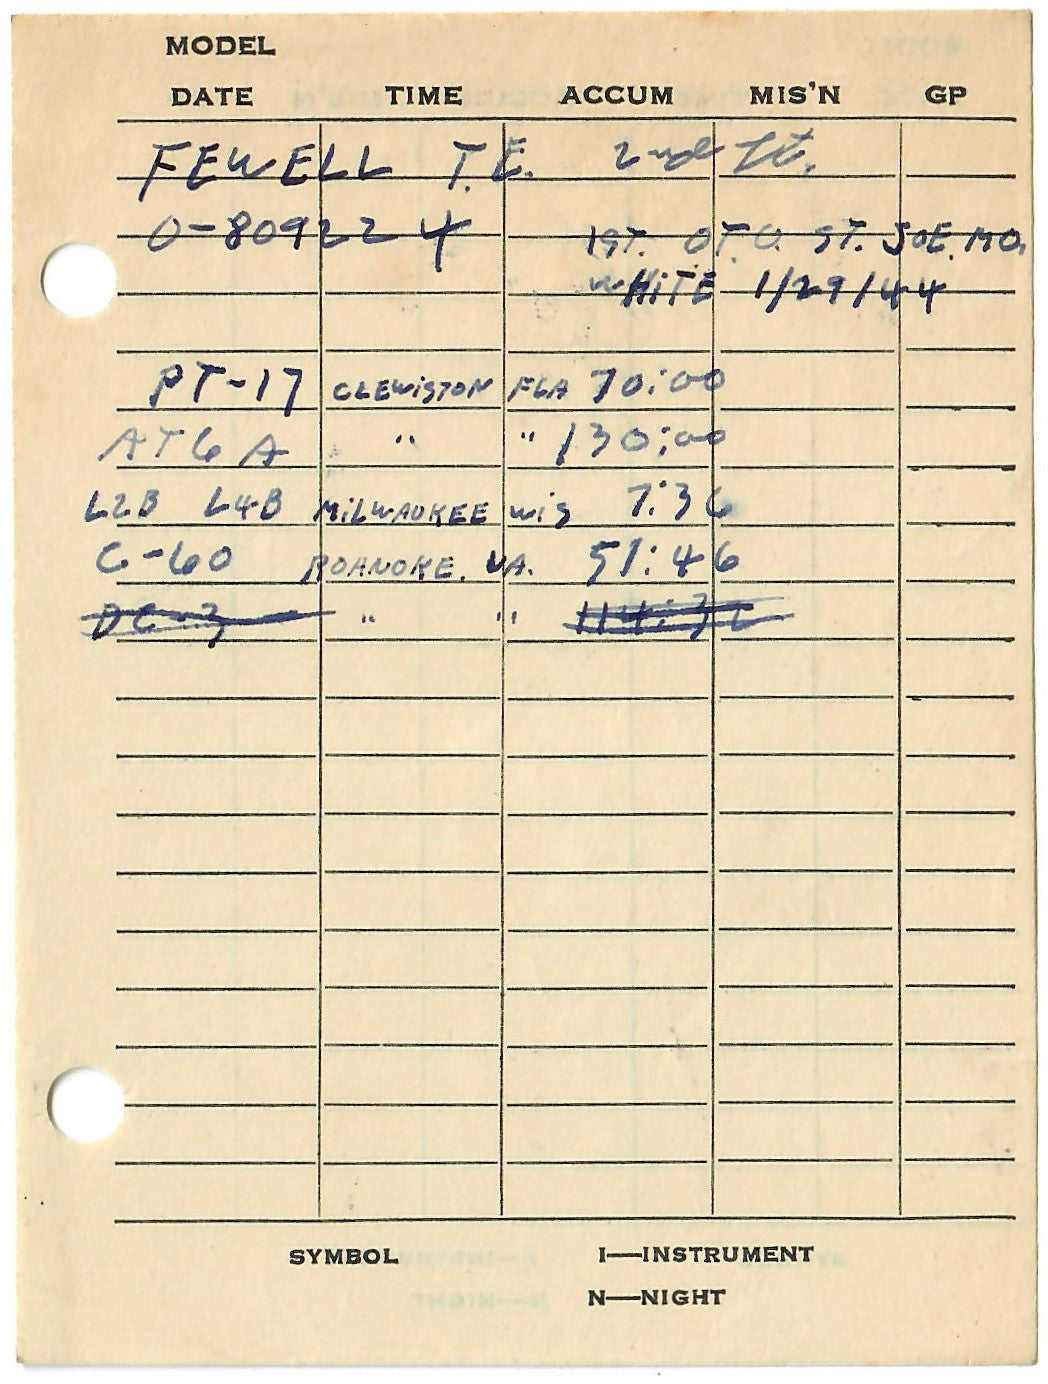 MODEL
DATE TIME ACCUM MIS'N GP
FEWELL T.E. 2nd Lt.
O-809224 1ST. O.T.U. ST. JOE. MO.
WHITE 1/29/44
PT-17 CLEWISTON FLA 70:00
AT6A " " 130:00
L2B L4B MILWAUKEE WIS 7:36
C-60 ROANOKE. VA. 51:46
DC-3 " " 114:32
SYMBOL I—INSTRUMENT
N—NIGHT